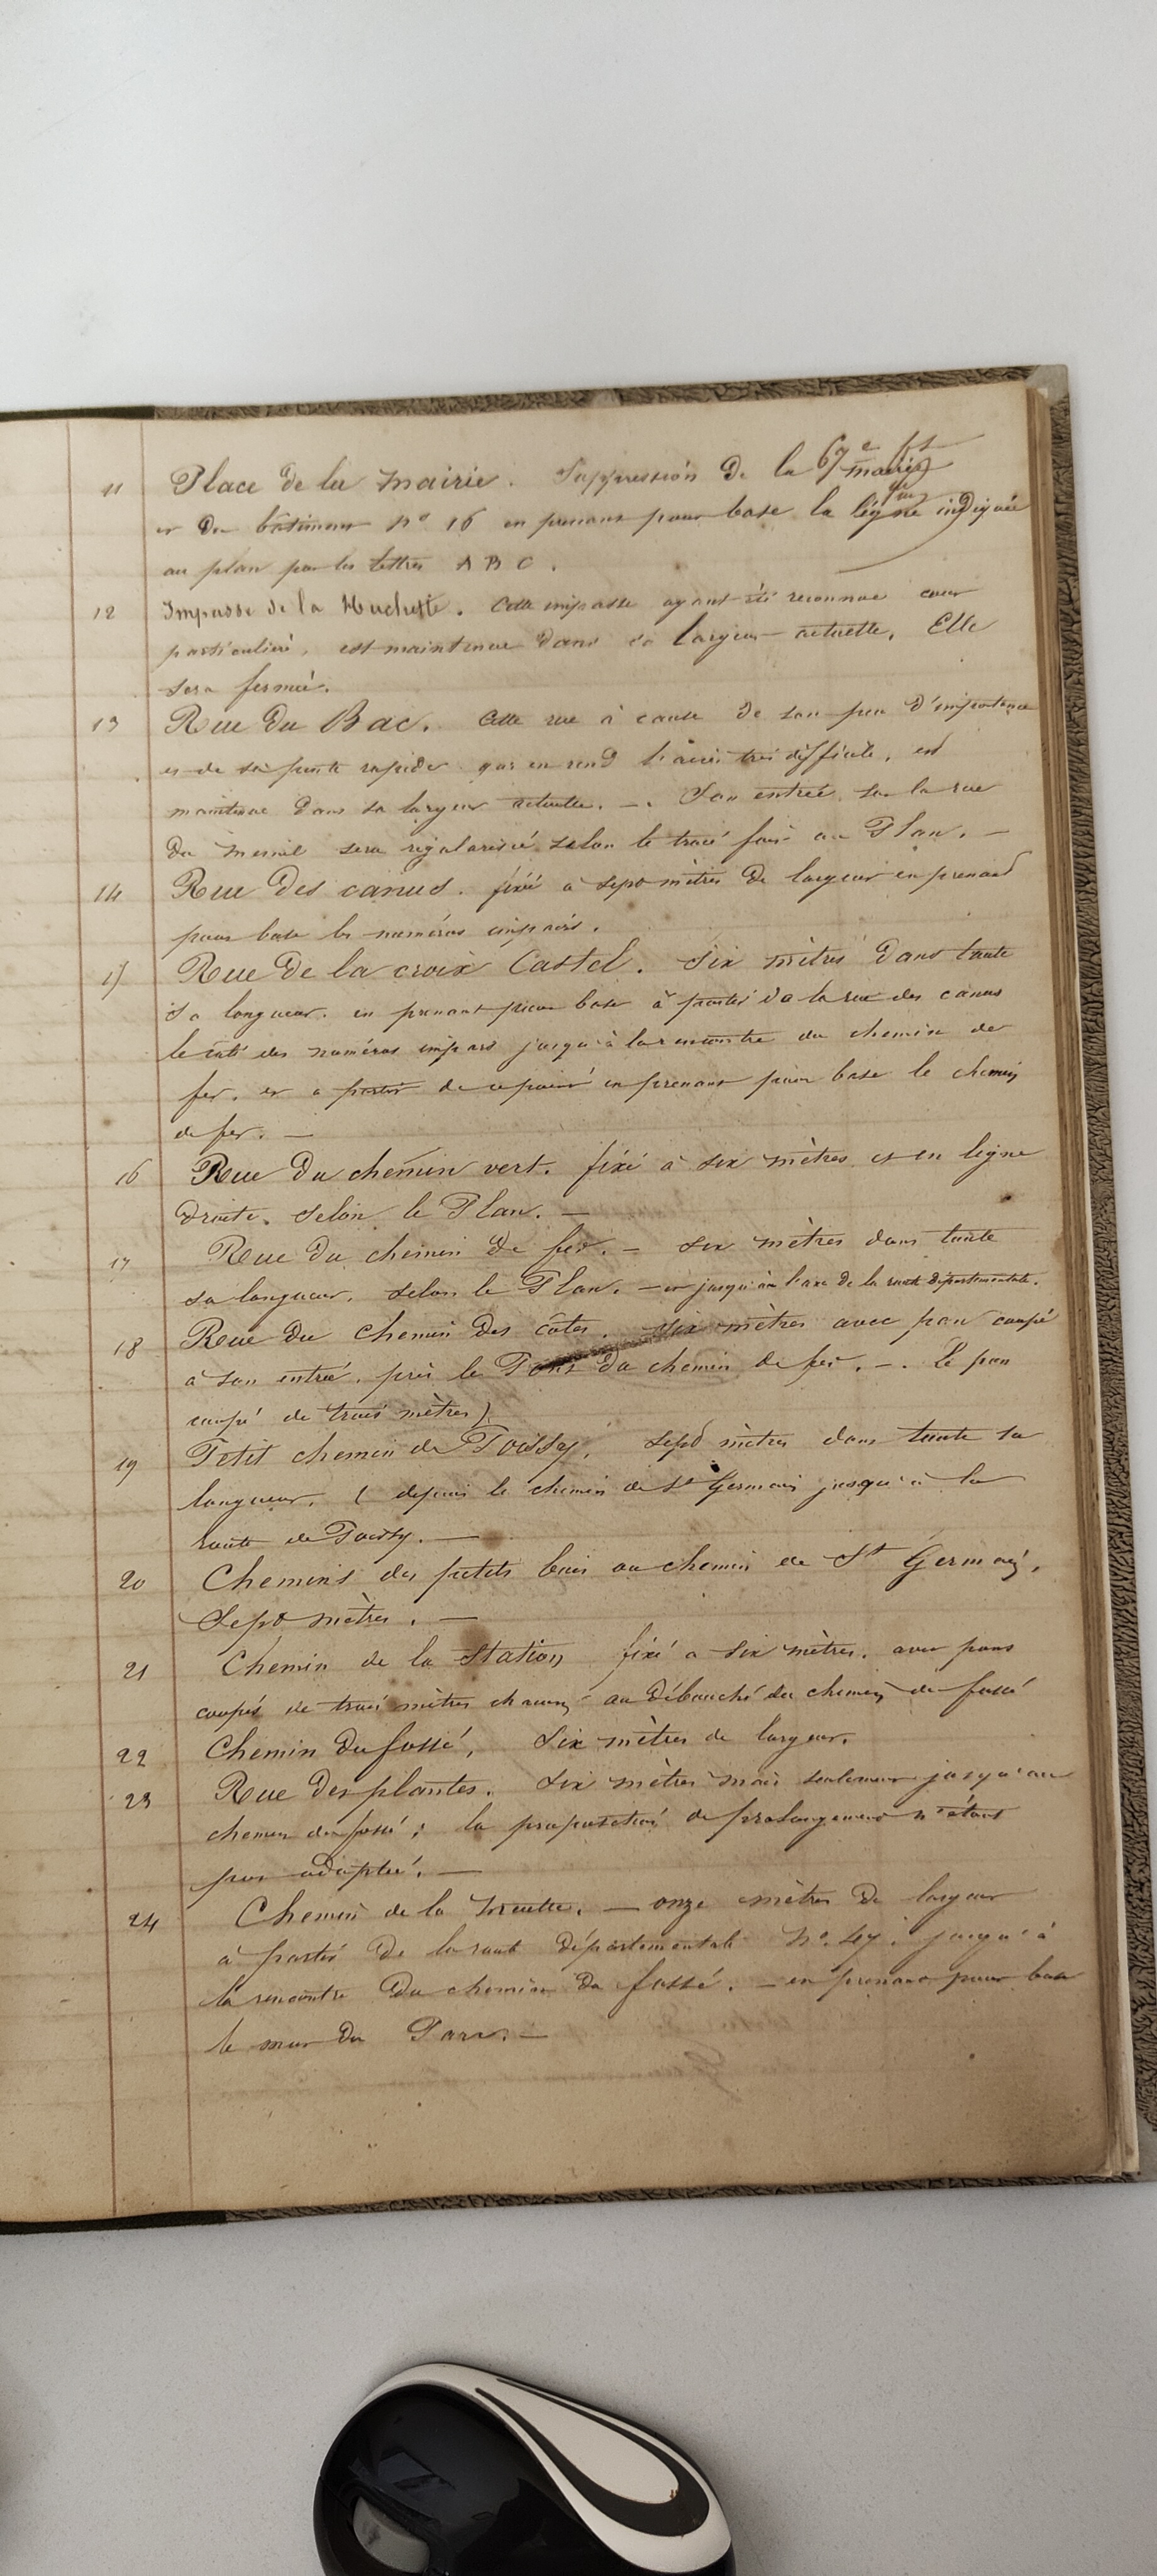 11 Place de la mairie. Suppression de la mairie
67e ft
et du bâtiment No 16 en prenant pour base la ligne indiquée
au plan par les lettres A B C.
12 Impasse de la Huchette. Cette impasse ayant été reconnue cour
particulière, est maintenue dans sa largeur actuelle. Elle
sera fermée.
13 Rue du Bac. Cette rue à cause de son peu d'importance
et de sa pente rapide qui en rend l'accès très difficile, est
maintenue dans sa largeur actuelle. —. Son entrée sur la rue
du mesnil sera régularisée selon le tracé fait au Plan. —
14 Rue des canus. fixée à sept mètres de largeur en prenant
pour base les numéros impairs.
15 Rue de la croix Castel. Six mètres dans toute
sa longueur. en prenant pour base à partir de la rue des canus
le côté des numéros impairs jusqu'à la rencontre du chemin de
fer. et a partir de ce point en prenant pour base le chemin
de fer. —
16 Rue du chemin vert. fixé à six mètres et en ligne
droite. Selon le Plan. —
17 Rue du chemin de fer. — six mètres dans toute
sa longueur. selon le Plan. — et jusqu'à l'axe de la route départementale.
18 Rue du Chemin des côtes. six mètres avec pan coupé
à son entrée. près le Pont du chemin de fer. —. le pan
coupé de trois mètres)
19 Petit chemin de Poissy. Sept mètres dans toute sa
longueur. ( depuis le chemin de St Germain jusqu'à la
route de Poissy. —
20 Chemins des petits bois au chemin de St Germain.
Sept mètres. —
21 Chemin de la Station fixé a six mètres. avec pans
coupés de trois mètres chacun au débouché du chemin du fossé
22 Chemin du fossé. Six mètres de largeur.
23 Rue des plantes. Six mètres mais seulement jusqu'au
chemin du fossé; la proposition de prolongement n'étant
pas adoptée. —
24 Chemin de la muette. — onze mètres de largeur
à partir de la route départementale No. 47. jusqu'à
la rencontre du chemin du fossé. — en prenant pour base
le mur du Parc. —